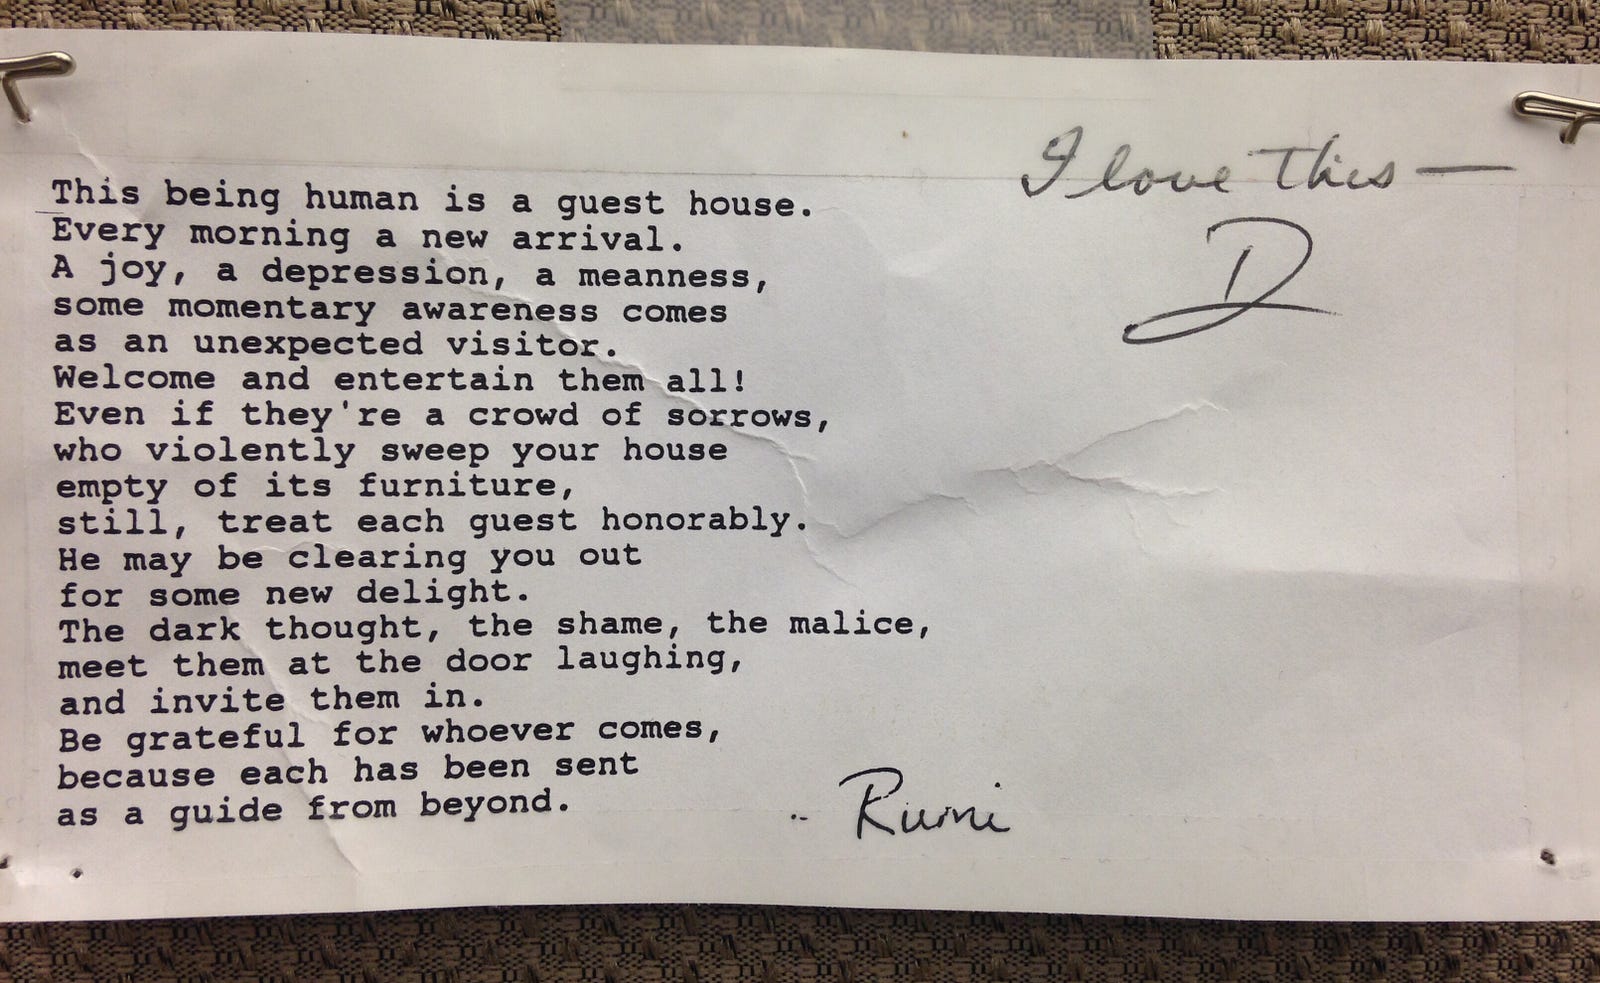 I love This —
D
This being human is a guest house.
Every morning a new arrival.
A joy, a depression, a meanness,
some momentary awareness comes
as an unexpected visitor.
Welcome and entertain them all!
Even if they're a crowd of sorrows,
who violently sweep your house
empty of its furniture,
still, treat each guest honorably.
He may be clearing you out
for some new delight.
The dark thought, the shame, the malice,
meet them at the door laughing,
and invite them in.
Be grateful for whoever comes,
because each has been sent
as a guide from beyond.
.. Rumi